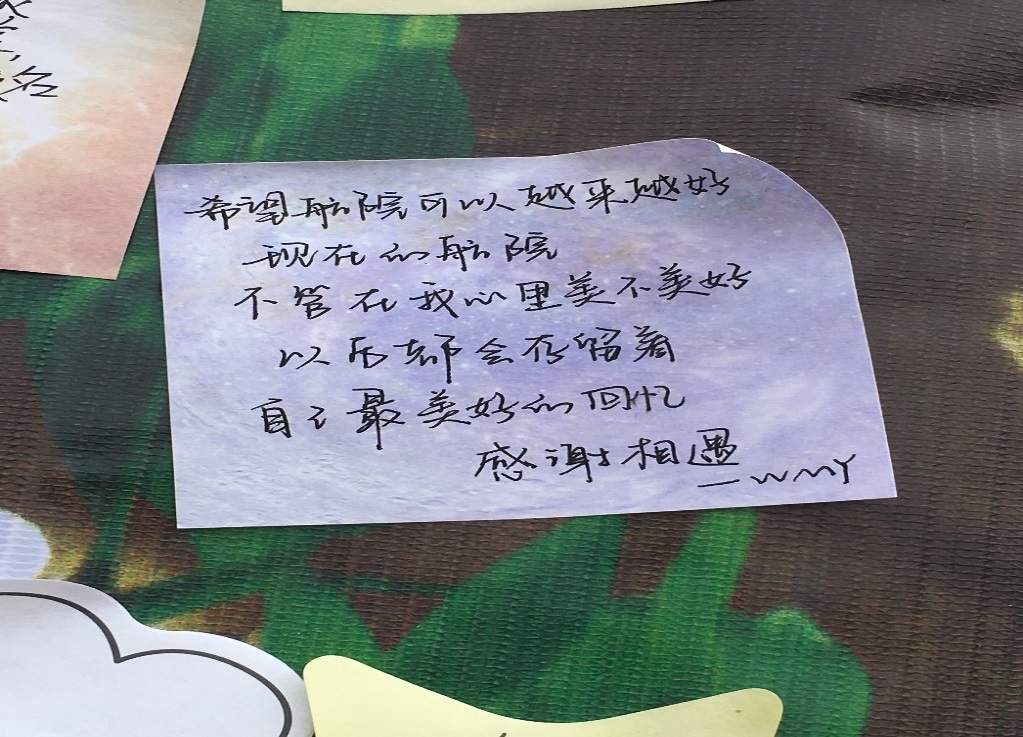 希望航院可以越来越好
现在的航院
不管在我心里美不美好
以后都会存留着
自己最美好的回忆
感谢相遇
—WMY
名